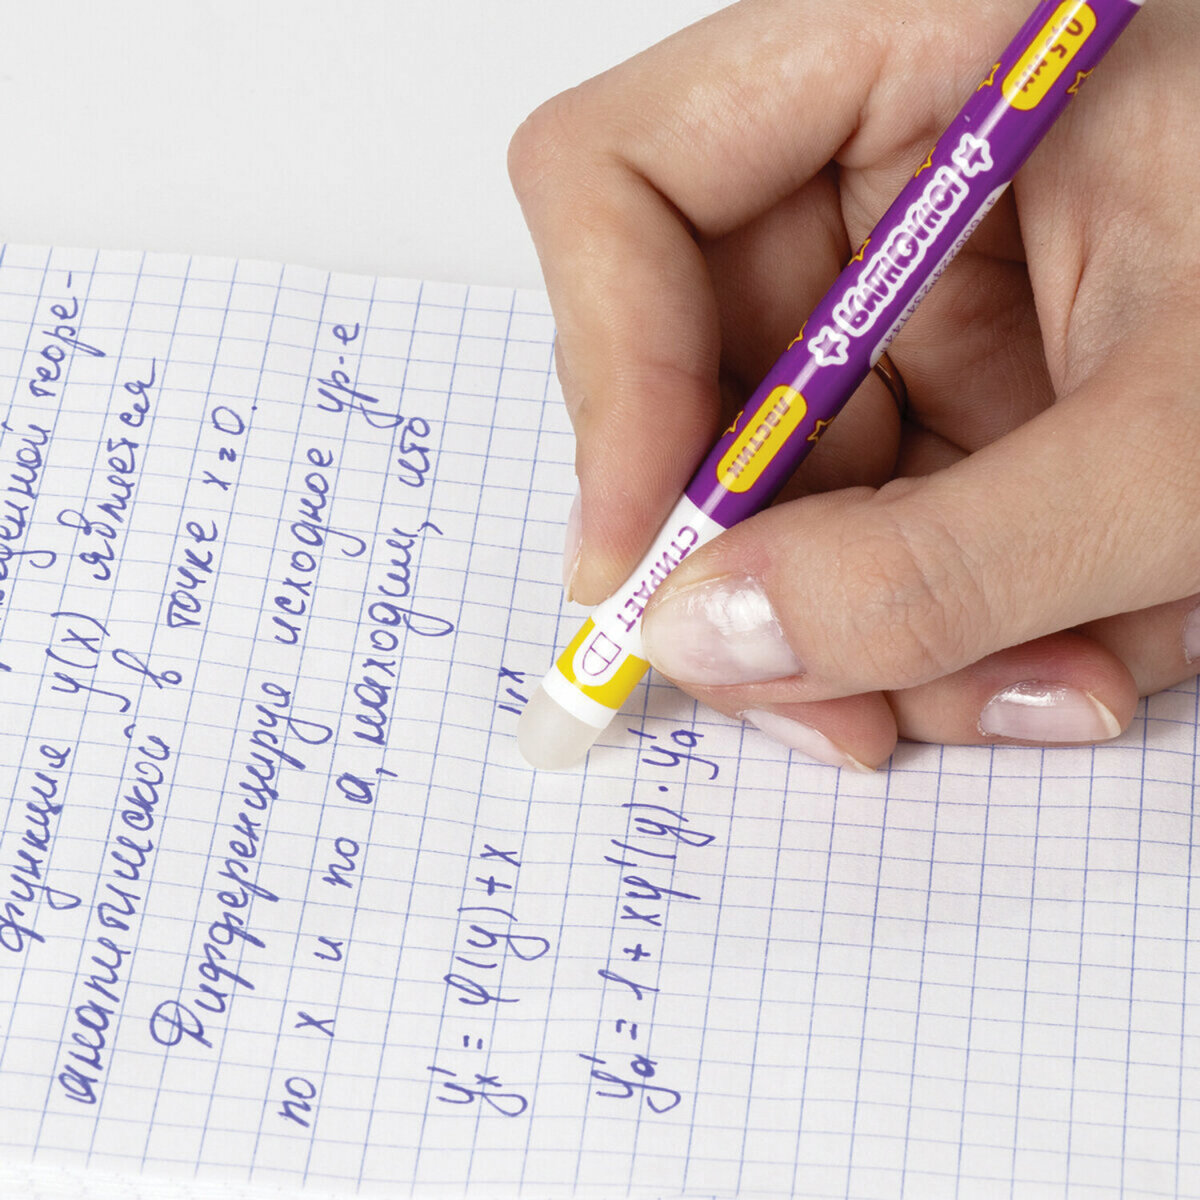 теоре-
функция y(x) является
аналитической в точке x=0.
Дифференцируя исходное ур-е
по x и по a, находим, что
y'ₓ = φ(y) + x
y'ₐ = 1 + xφ'(y)·y'ₐ
0,5 мм
ЮНЛАНДИЯ
ластик
СТИРАЕТ